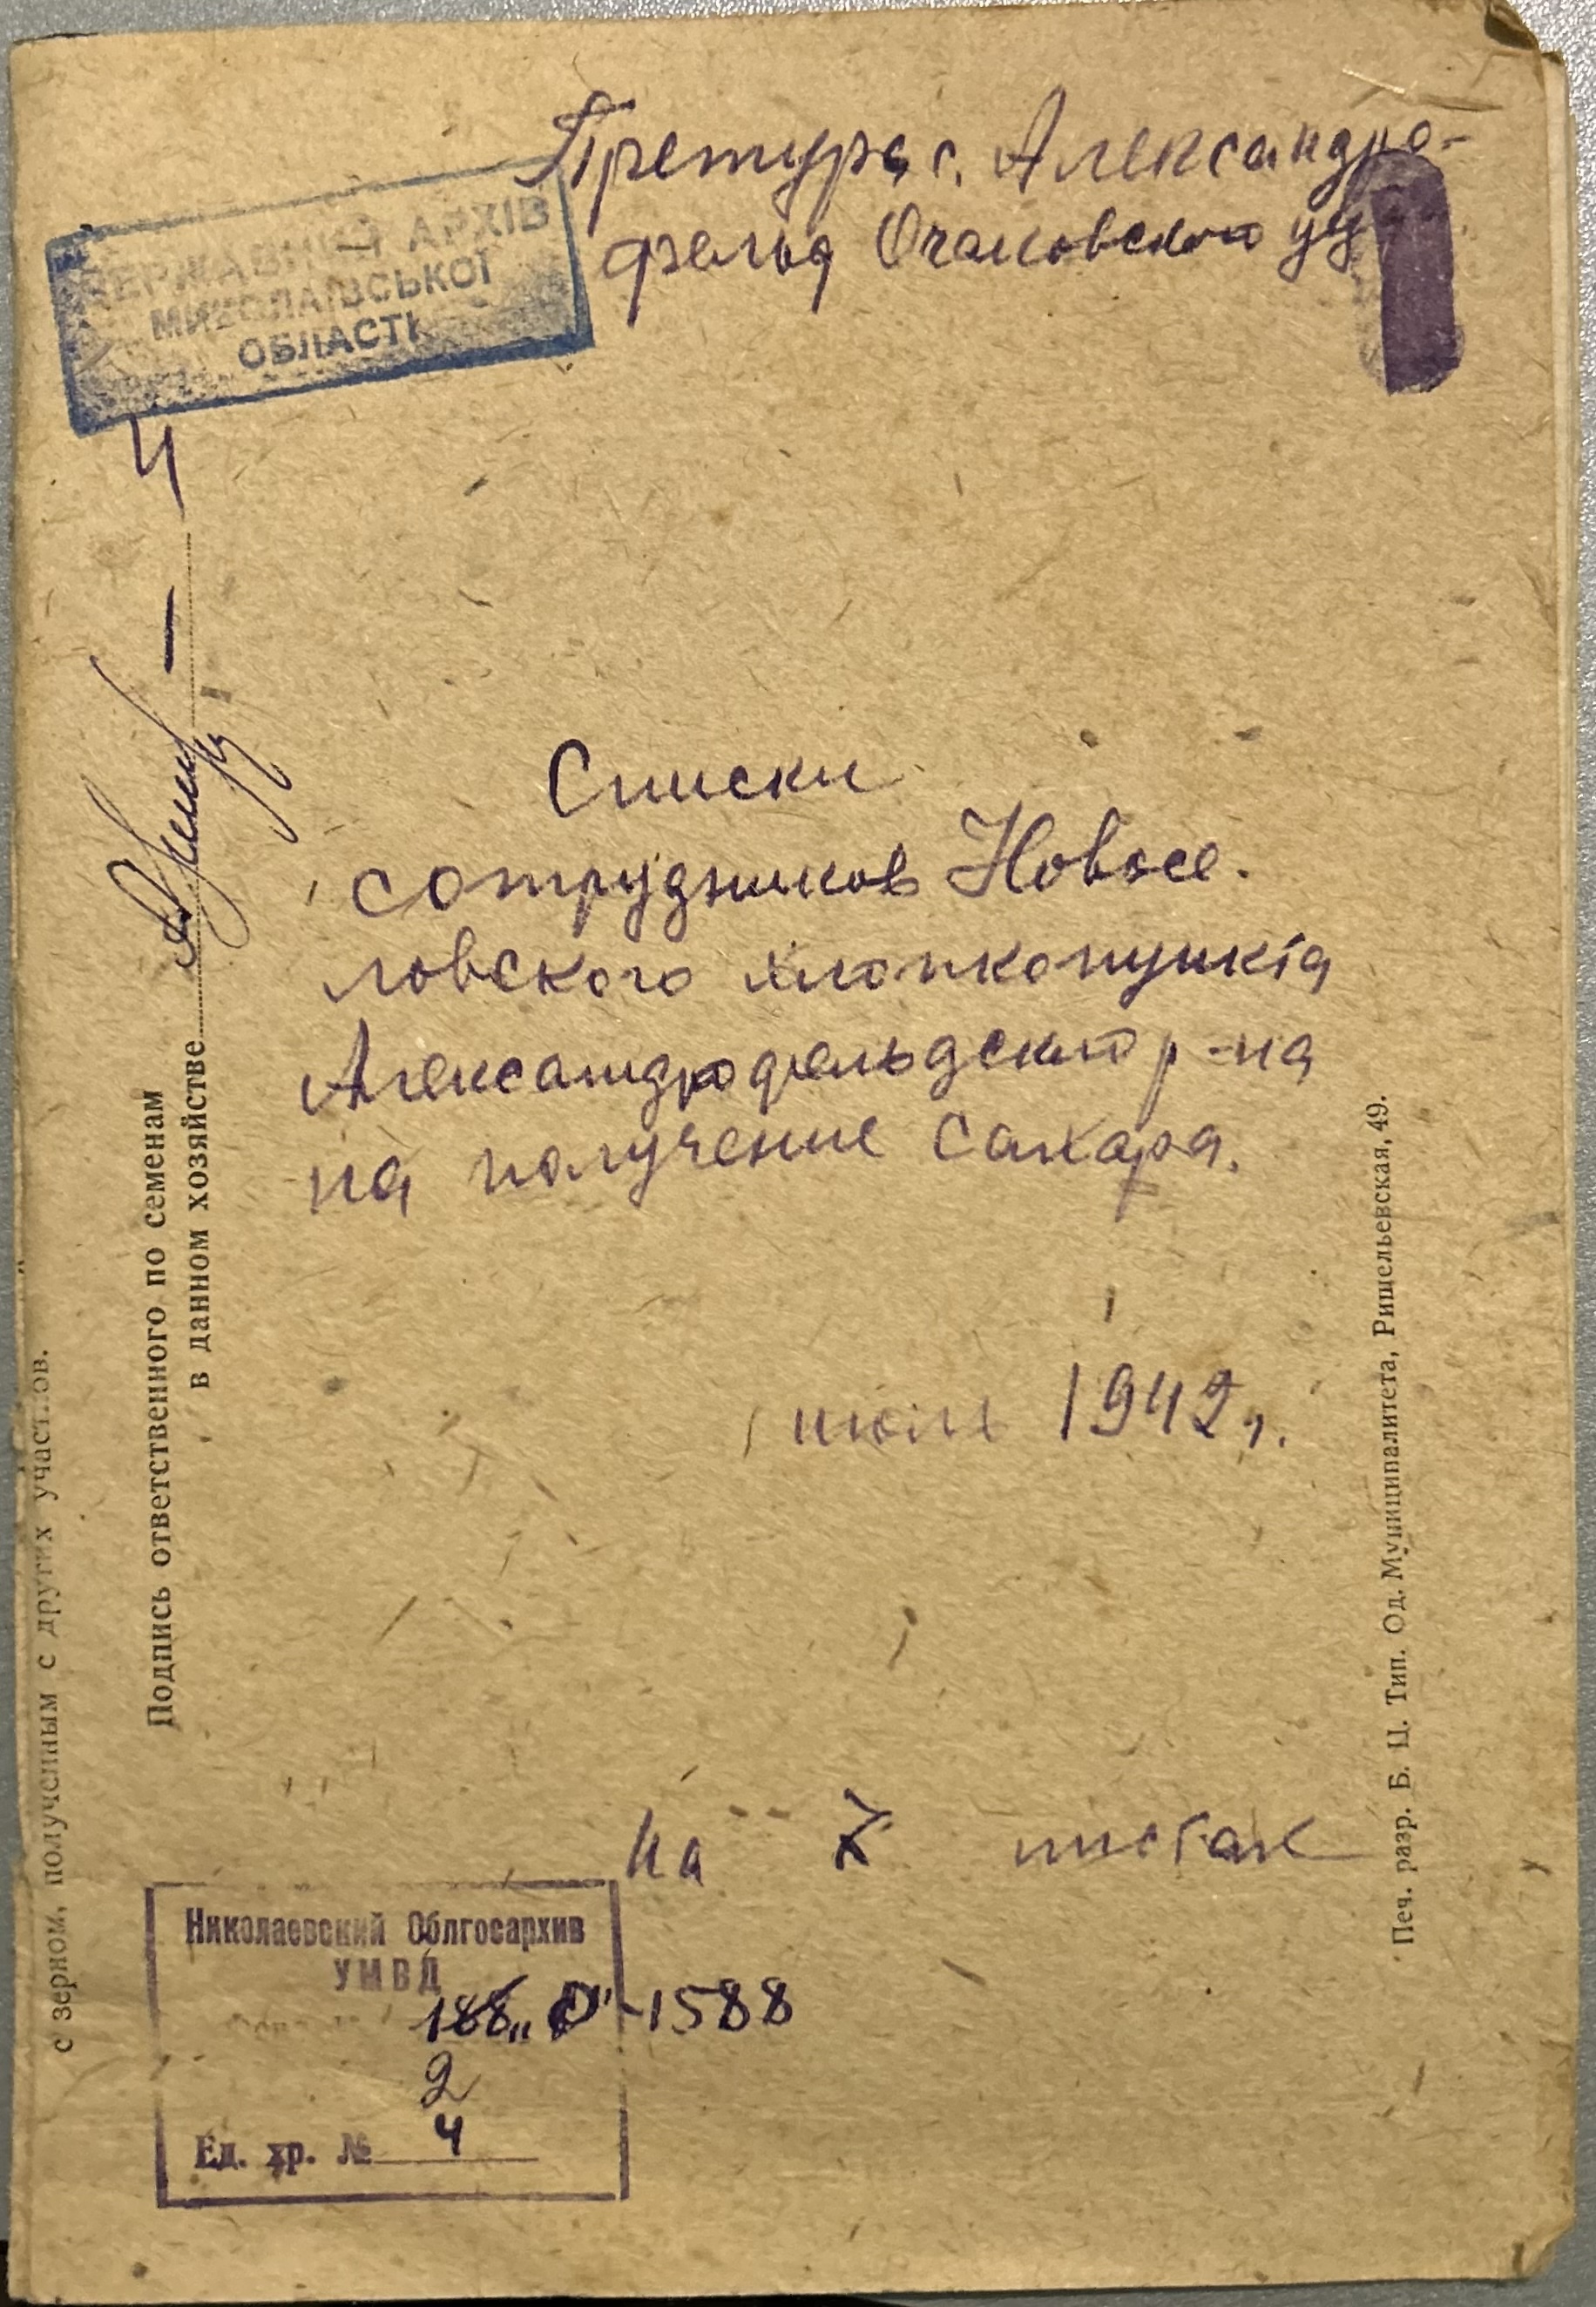 Претура с. Александро-
фельд Очаковского уу
ДЕРЖАВНИЙ АРХІВ
МИКОЛАЇВСЬКОЇ
ОБЛАСТІ
4
Списки
сотрудников Новосе.
ловского хлопкопункта
Александрофельдского р-на
на получение сахара.
июль 1942 г.
на 7 листах
Николаевский Облгосархив
УМВД
188 „Р"-1588
2
Ед. хр. № 4
с зерном, полученным с других участков.
Подпись ответственного по семенам
в данном хозяйстве
Печ. разр. Б. Ц. Тип. Од. Муниципалитета, Ришельевская, 49.